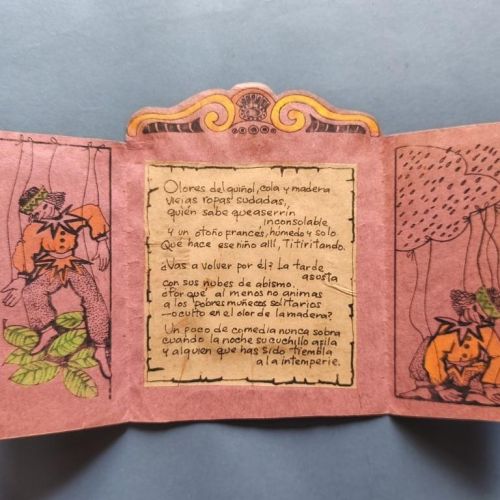 Olores del guiñol, cola y madera
viejas ropas sudadas,
quién sabe queaserrín
inconsolable
y un otoño francés, húmedo y solo
Qué hace ese niño allí, Titiritando.
¿Vas a volver por él? La tarde
asusta
con sus nubes de abismo.
¿Por qué al menos no animas
a los pobres muñecos solitarios
—oculto en el olor de la madera?
Un poco de comedia nunca sobra
cuando la noche su cuchillo afila
y alguien que has sido tiembla
a la intemperie.